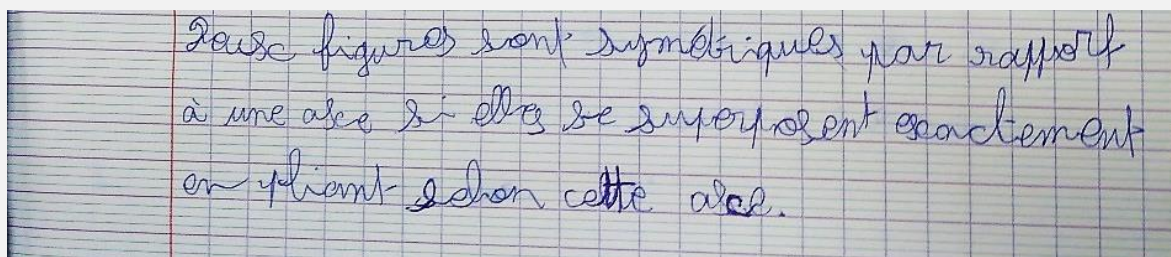 Deux figures sont symétriques par rapport
à une axe si elles se superposent exactement
en pliant selon cette axe.